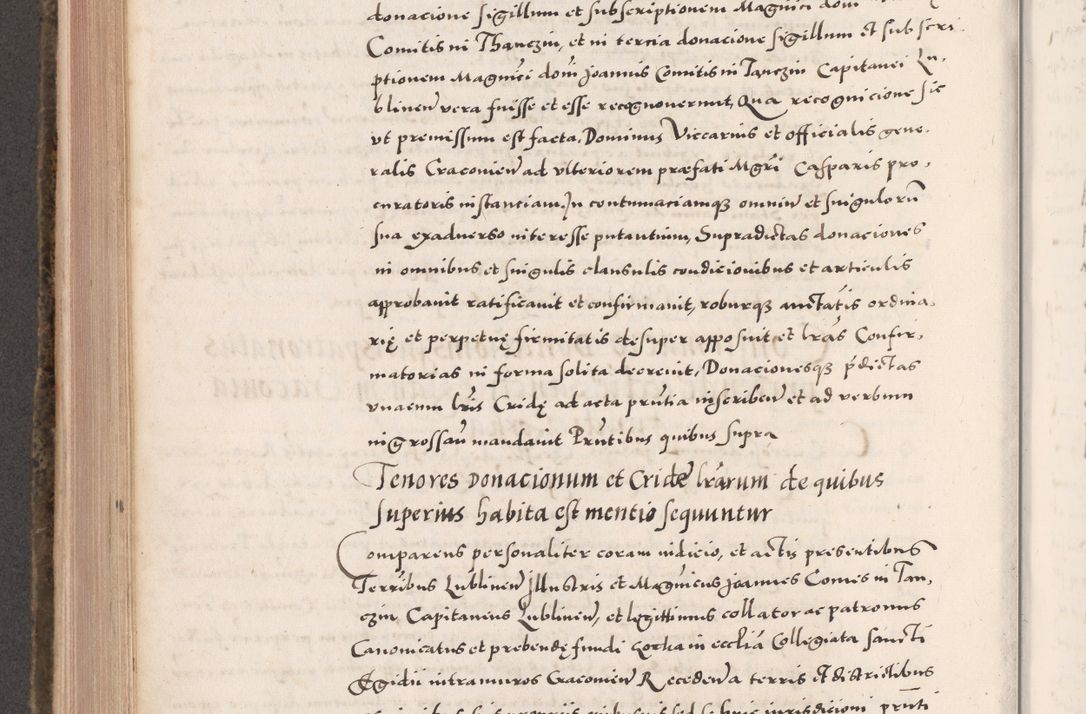 donacione sigillum et subscriptionem Magnici domi
Comitis in Thanczin, et in tercia donacione sigillum et subscri
ptionem Magnici domi Joannis Comitis in Tanczin Capitanei Lu,
blinen vera fuisse et esse recognouerunt, Qua recognicione sic
vt premissum est facta, Dominus Viccarius et officialis gene,
ralis Cracovien ad vlteriorem præfati Mgri Casparis pro,
curatoris instanciam In contumaciamqz omniu et singuloru
sua exaduerso interesse putantium, Supradictas donaciones
in omnibus et singulis clausulis condicionibus et articulis
approbauit ratificauit et confirmauit, roburqz auctatis ordina,
rię et perpetuę firmitatis desuper apposuit et lras Confir,
matorias in forma solita decreuit, Donacionesqz pdictas
vnacum lris Cridę ad acta pntia inscriben et ad verbum
ingrossau mandauit Pntibus quibus supra
Tenores Donacionum et Cride lrarum de quibus
superius habita est mentio sequuntur
Comparens personaliter coram iudicio, et actis presentibus
Terribus Lublinen Illustris et Magnicus Joannes Comes in Tan,
czin Capitaneus Lublinen, et legittimus collator ac patronus
Canonicatus et prebendę fundi in ecclia Collegiata sancti
Egidii intra muros Cracovien Recedena terris et districtibus
iurisdicioni pnti